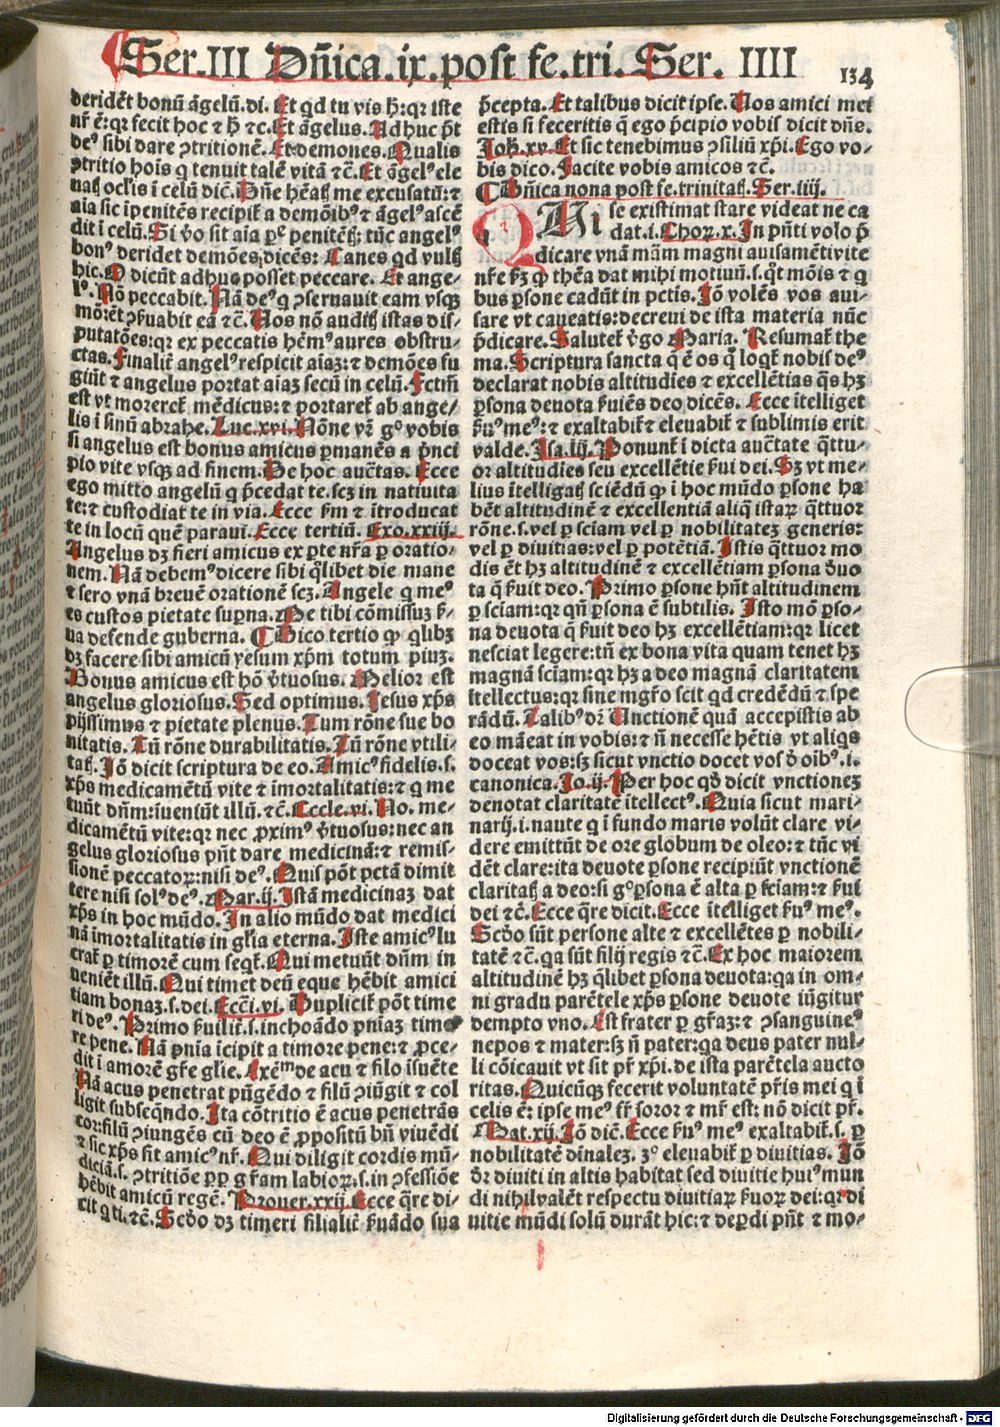 Ser.III Dñica.ix.post fe.tri. Ser. IIII
134
deridēt bonū āgelū.di. Et qd tu vis h̄:qr iste
nr̄ ē:qr fecit hoc ⁊ h̄ ⁊c. Et āgelus. Ad huc p̄t
deꝰ sibi dare ꝯtritionē. Et demones. Qualis
ꝯtritio hoīs q tenuit talē vitā ⁊c̄. Et āgelꝰ ele
uat̄ oculis ī celū dic̄. Dn̄e hēat̄ me excusatū:⁊
aīa sic īpenitēs recipit̄ a demōibꝰ ⁊ āgelꝰ ascē
dit ī celū. Si v̄o sit aīa ꝑ penitēt̄: tūc angelꝰ
bonꝰ deridet demōes dicēs: Canes qd vult̄
hic. O dicūt adhuc posset peccare. Et ange-
lꝰ. Nō peccabit. Nā deꝰ q ꝯseruauit eam vsqꝫ
mōrēt ꝯseruabit eā ⁊c̄. Vos nō audit̄ istas dis-
putatōes:qr ex peccatis hēmꝰ aures obstru-
ctas. Finalir̄ angelꝰ respicit aīaꝫ:⁊ demōes fu
giūt ⁊ angelus portat aīaꝫ secū in celū. Ictissi
est vt moreret̄ mēdicus:⁊ portaret̄ ab ange-
lis ī sinū abrahe. Luc.xvi. Nōne vr̄ gꝰ vobis
si angelus est bonus amicus ꝑmanēs a p̄nci
pio vite vsqꝫ ad finem. De hoc auc̄tas. Ecce
ego mitto angelū q p̄cedat te.scꝫ in natiuita
te:⁊ custodiat te in via. Ecce sc̄dm ⁊ ītroducat
te in locū quē paraui. Ecce tertiū. Exo.xxiij.
Angelus dꝫ fieri amicus ex ꝑte nr̄a ꝑ oratio-
nem. Nā debemꝰ dicere sibi qͥlibet die mane
⁊ sero vnā breuē orationē scꝫ. Angele q meꝰ
es custos pietate supna. Me tibi cōmissuꝫ ser-
ua defende guberna. ¶ Dico tertio ꝙ qͥlibꝫ
dꝫ facere sibi amicū yesum xp̄m totum piuꝫ.
Bonus amicus est hō v̄tuosus. Melior est
angelus gloriosus. Sed optimus. Iesus xp̄s
pijssimus ⁊ pietate plenus. Tum rōne sue bo
nitatis. Tū rōne durabilitatis. Tū rōne vtili-
tat̄. Iō dicit scriptura de eo. Amicꝰ fidelis.s.
xp̄s medicamētū vite ⁊ īmortalitatis:⁊ q me
tuūt dn̄m:īueniūt illū.⁊c̄. Eccle.vi. No. me-
dicamētū vite:qr nec ꝓximꝰ v̄tuosus:nec an
gelus gloriosus pn̄t dare medicinā:⁊ remis-
sionē peccatoꝝ:nisi deꝰ. Quis pōt pctā dimit
tere nisi solꝰ deꝰ. Mar.ij. Istā medicinaꝫ dat
xp̄s in hoc mūdo. In alio mūdo dat medici
nā īmortalitatis in gl̄ia eterna. Iste amicꝰ lu
crat̄ ꝑ timorē cum seqt̄. Qui metuūt dn̄m in
ueniēt illū. Qui timet deū eque hēbit amici
tiam bonaꝫ.s.dei. Ecci.vi. Duplicir̄ pōt time
ri deꝰ. Primo ẜuilir̄.s.inchoādo pniaꝫ timor
re pene. Nā pnīa īcipit a timore pene:⁊ ꝓce-
dit ī amorē gr̄e glie. Exēm de acu ⁊ filo īsuēte
Nā acus penetrat pūgēdo ⁊ filū ꝯiūgit ⁊ col
ligit subseqn̄do. Ita cōtritio ē acus penetrās
cor:filū ꝯiungēs cū deo ē ꝓpositū bn̄ viuēdi
⁊ sic xp̄s fit amicꝰ nr̄. Qui diligit cordis mū-
diciā.s. ꝯtritiōe ꝓp gr̄am labioꝝ.s.in ꝯfessiōe
hēbit amicū regē. Prouer.xxij. Ecce qr̄e di-
cit q ti.⁊c̄. Scd̄o dꝫ timeri filialir̄ ẜuādo sua
p̄cepta. Et talibus dicit ipse. Vos amici mei
estis si feceritis q̄ ego p̄cipio vobis dicit dn̄s.
Ioh.xv. Et sic tenebimus ꝯsiliū xp̄i. Ego vo-
bis dico. Facite vobis amicos ⁊c̄.
¶ Dn̄ica nona post fe.trinitat̄. Ser.iiij.
QUi se existimat stare videat ne ca
dat.i. Choꝝ.x. In pn̄ti volo p̄
dicare vnā mām magni auisamēti vite
nr̄e sꝫ ꝙ thēa dat mihi motiuū.s.qͣt mōis ⁊ q
bus ꝑsone cadūt in pctis. Iō volēs vos aui-
sare vt caueatis:decreui de ista materia nūc
p̄dicare. Salutet̄ v̄go Maria. Resumat̄ the
ma. Scriptura sancta q̄ ē os q̄ loqt̄ nobis deꝰ
declarat nobis altitudīes ⁊ excellētias qͣs hꝫ
ꝑsona deuota ẜuiēs deo dicēs. Ecce ītelliget
ẜuꝰ meꝰ:⁊ exaltabit̄ ⁊ eleuabit̄ ⁊ sublimis erit
valde. Isa.lij. Ponunt̄ ī dicta auc̄tate qͣttu-
or altitudīes seu excellētie ẜui dei. Sꝫ vt me-
lius ītelligat̄ sciēdū ꝙ ī hoc mūdo ꝑsone ha
bēt altitudinē ⁊ excellentiā aliqͣ istaꝝ qͣttuor
rōne.s.vel ꝑ sciam vel ꝑ nobilitateꝫ generis:
vel ꝑ diuitias:vel ꝑ potētiā. Istis qͣttuor mo
dis ēt hꝫ altitudinē ⁊ excellētiam ꝑsona deuo
ta q̄ ẜuit deo. Primo ꝑsone hn̄t altitudinem
ꝑ sciam:qr qn̄ ꝑsona ē subtilis. Isto mō ꝑso-
na deuota q̄ ẜuit deo hꝫ excellētiam:qr licet
nesciat legere:tn̄ ex bona vita quam tenet hꝫ
magnā sciam:qr hꝫ a deo magnā claritatem
ītellectus:qr sine mgr̄o scit qd credēdū ⁊ spe
rādū. Talibꝰ dr̄ Unctionem quā accepistis ab
eo māeat in vobis:⁊ n̄ necesse hētis vt aliqs
doceat vos:sꝫ sicut vnctio docet vos d̄ oībꝰ.i.
canonica. Io.ij. Per hoc qd̄ dicit vnctioneꝫ
denotat claritatē ītellectꝰ. Quia sicut mari-
narij.i.naute q ī fundo maris volūt clare vi-
dere emittūt de ore globum de oleo:⁊ tūc vi
dēt clare:ita deuote ꝑsone recipiūt vnctionē
claritat̄ a deo:si gꝰ ꝑsona ē alta ꝑ sciam:⁊ ẜui
dei ⁊c̄. Ecce qr̄e dicit. Ecce ītelliget ẜuꝰ meꝰ.
Scd̄o sūt persone alte ⁊ excellētes ꝑ nobili-
tatē ⁊c̄.qa sūt filij regis ⁊c̄. Ex hoc maiorem
altitudinē hꝫ qͥlibet ꝑsona deuota:qa in om-
ni gradu parētele xp̄s ꝑsone deuote iūgitur
dempto vno. Est frater ꝑ gr̄aꝫ:⁊ ꝯsanguineꝰ
nepos ⁊ mater:sꝫ n̄ pater:qa deus pater nul-
li cōicauit vt sit pr̄ xp̄i.de ista parētela aucto
ritas. Quicūqꝫ fecerit voluntatē pr̄is mei q ī
celis ē: ipse meꝰ fr̄ soror ⁊ mr̄ est: nō dicit pr̄.
Mat.xij. Iō dic̄. Ecce ẜuꝰ meꝰ exaltabit̄.s. ꝑ
nobilitatē dīnaleꝫ. 3ꝰ eleuabit̄ ꝑ diuitias. Iō
dr̄ diuiti in altis habitat sed diuitie huiꝰ mun
di nihil valēt respectu diuitiaꝝ ẜuoꝝ dei:qr di
uitie mūdi solū durāt hic:⁊ deꝑdi pn̄t ⁊ mo-
Digitalisierung gefördert durch die Deutsche Forschungsgemeinschaft - DFG